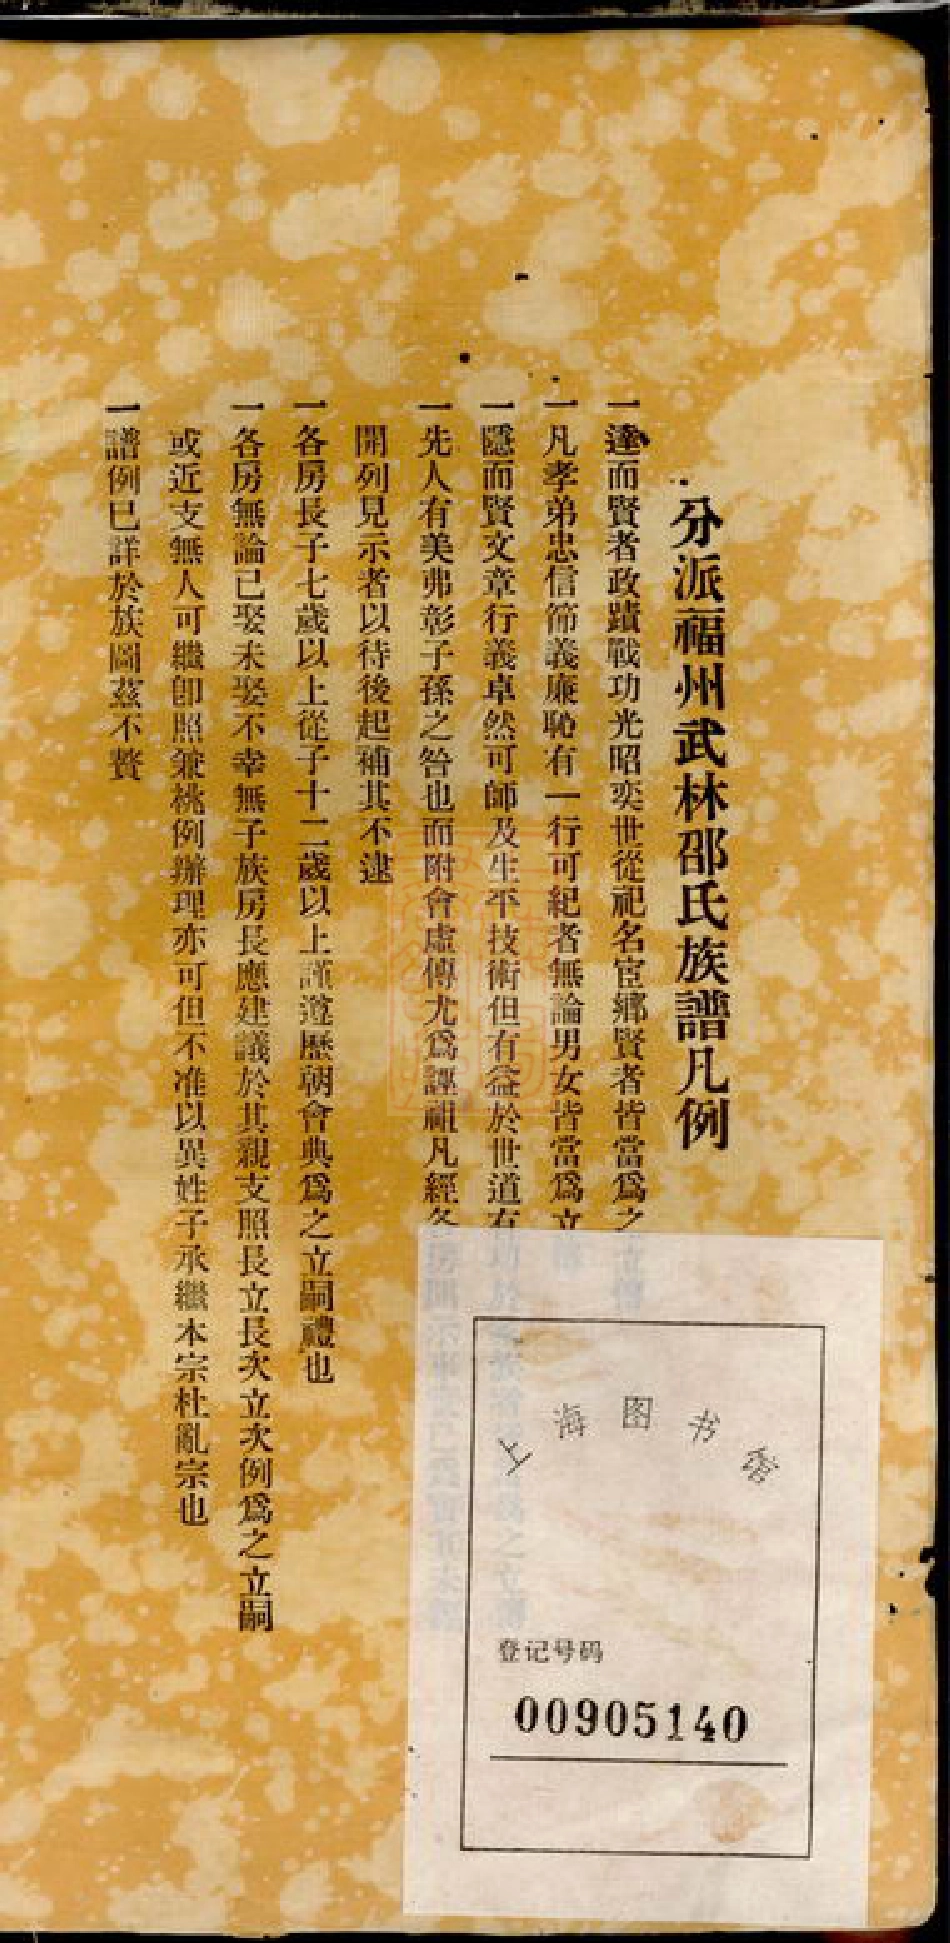 分派福州武林邵氏族譜凡例
一達而賢者政蹟戰功光昭奕世從祀名宦鄉賢者皆當爲之立傳
一凡孝弟忠信節義廉恥有一行可紀者無論男女皆當爲立
一隱而賢文章行義卓然可師及生平技術但有益於世道有
一先人有美弗彰子孫之咎也而附會虛傳尤爲誣祖凡經各
開列見示者以待後起補其不逮
一各房長子七歲以上從子十二歲以上謹遵歷朝會典爲之立嗣禮也
一各房無論已娶未娶不幸無子族房長應建議於其親支照長立長次立次例爲之立嗣
或近支無人可繼卽照兼祧例辦理亦可但不准以異姓子承繼本宗杜亂宗也
一譜例已詳於族圖茲不贅
上海图书馆
登记号码
00905140